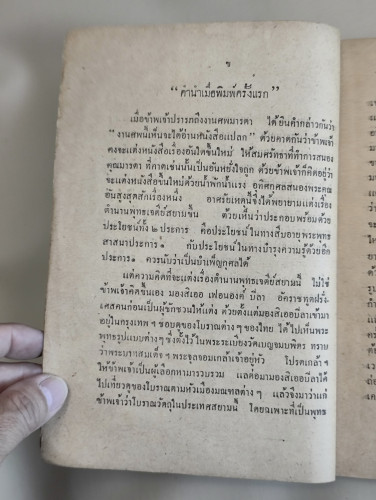 ข
"คำนำเมื่อพิมพ์ครั้งแรก"
เมื่อข้าพเจ้าปรารภถึงงานศพมารดา ได้ยินคำกล่าวกันว่า
"งานศพนี้เห็นจะได้อ่านหนังสือแปลก" ด้วยคาดกันว่าข้าพเจ้า
คงจะแต่งหนังสือเรื่องอันใดขึ้นใหม่ ให้สมศรัทธาที่ทำการสนอง
คุณมารดา ที่คาดเช่นนั้นเป็นอันหยั่งใจถูก ด้วยข้าพเจ้าก็คิดอยู่ว่า
จะแต่งหนังสือขึ้นใหม่ด้วยน้ำพักน้ำแรง อุทิศกุศลสนองพระคุณ
อันสูงสุดสักเรื่องหนึ่ง อาศรัยเหตุนี้จึงได้พยายามแต่งเรื่อง
ตำนานพุทธเจดีย์สยามขึ้น ด้วยเห็นว่าประกอบพร้อมด้วย
ประโยชน์ทั้ง ๒ ประการ คือประโยชน์ในทางสืบอายุพระพุทธ
สาสนาประการ ๑ กับประโยชน์ในทางบำรุงความรู้ด้วยอีก
ประการ ๑ ควรนับว่าเป็นบำเพ็ญกุศลได้
แต่ความคิดที่จะแต่งเรื่องตำนานพุทธเจดีย์สยามนี้ ไม่ใช่
ข้าพเจ้าคิดขึ้นเอง มองสิเออ เฟอนองด์ ปีลา อัครราชทูตฝรั่ง
เศสคนก่อนเป็นผู้ชักชวนให้แต่ง ด้วยตั้งแต่มองสิเออปีลาเข้ามา
อยู่ในกรุงเทพ ฯ ชอบดูของโบราณต่าง ๆ ของไทย ได้ไปเห็นพระ
พุทธรูปแบบต่าง ๆ ซึ่งตั้งไว้ในพระระเบียงวัดเบญจมบพิตร ทราบ
ว่าพระบาทสมเด็จ ฯ พระจุลจอมเกล้าเจ้าอยู่หัว โปรดเกล้า ฯ
ให้ข้าพเจ้าเป็นผู้เลือกหามารวบรวม แลต่อมามองสิเออปีลาได้
ไปเที่ยวดูของโบราณตามหัวเมืองมณฑลต่าง ๆ แล้วจึงมาว่าแก่
ข้าพเจ้าว่าโบราณวัตถุในประเทศสยามนี้ โดยฉเพาะที่เป็นพุทธ